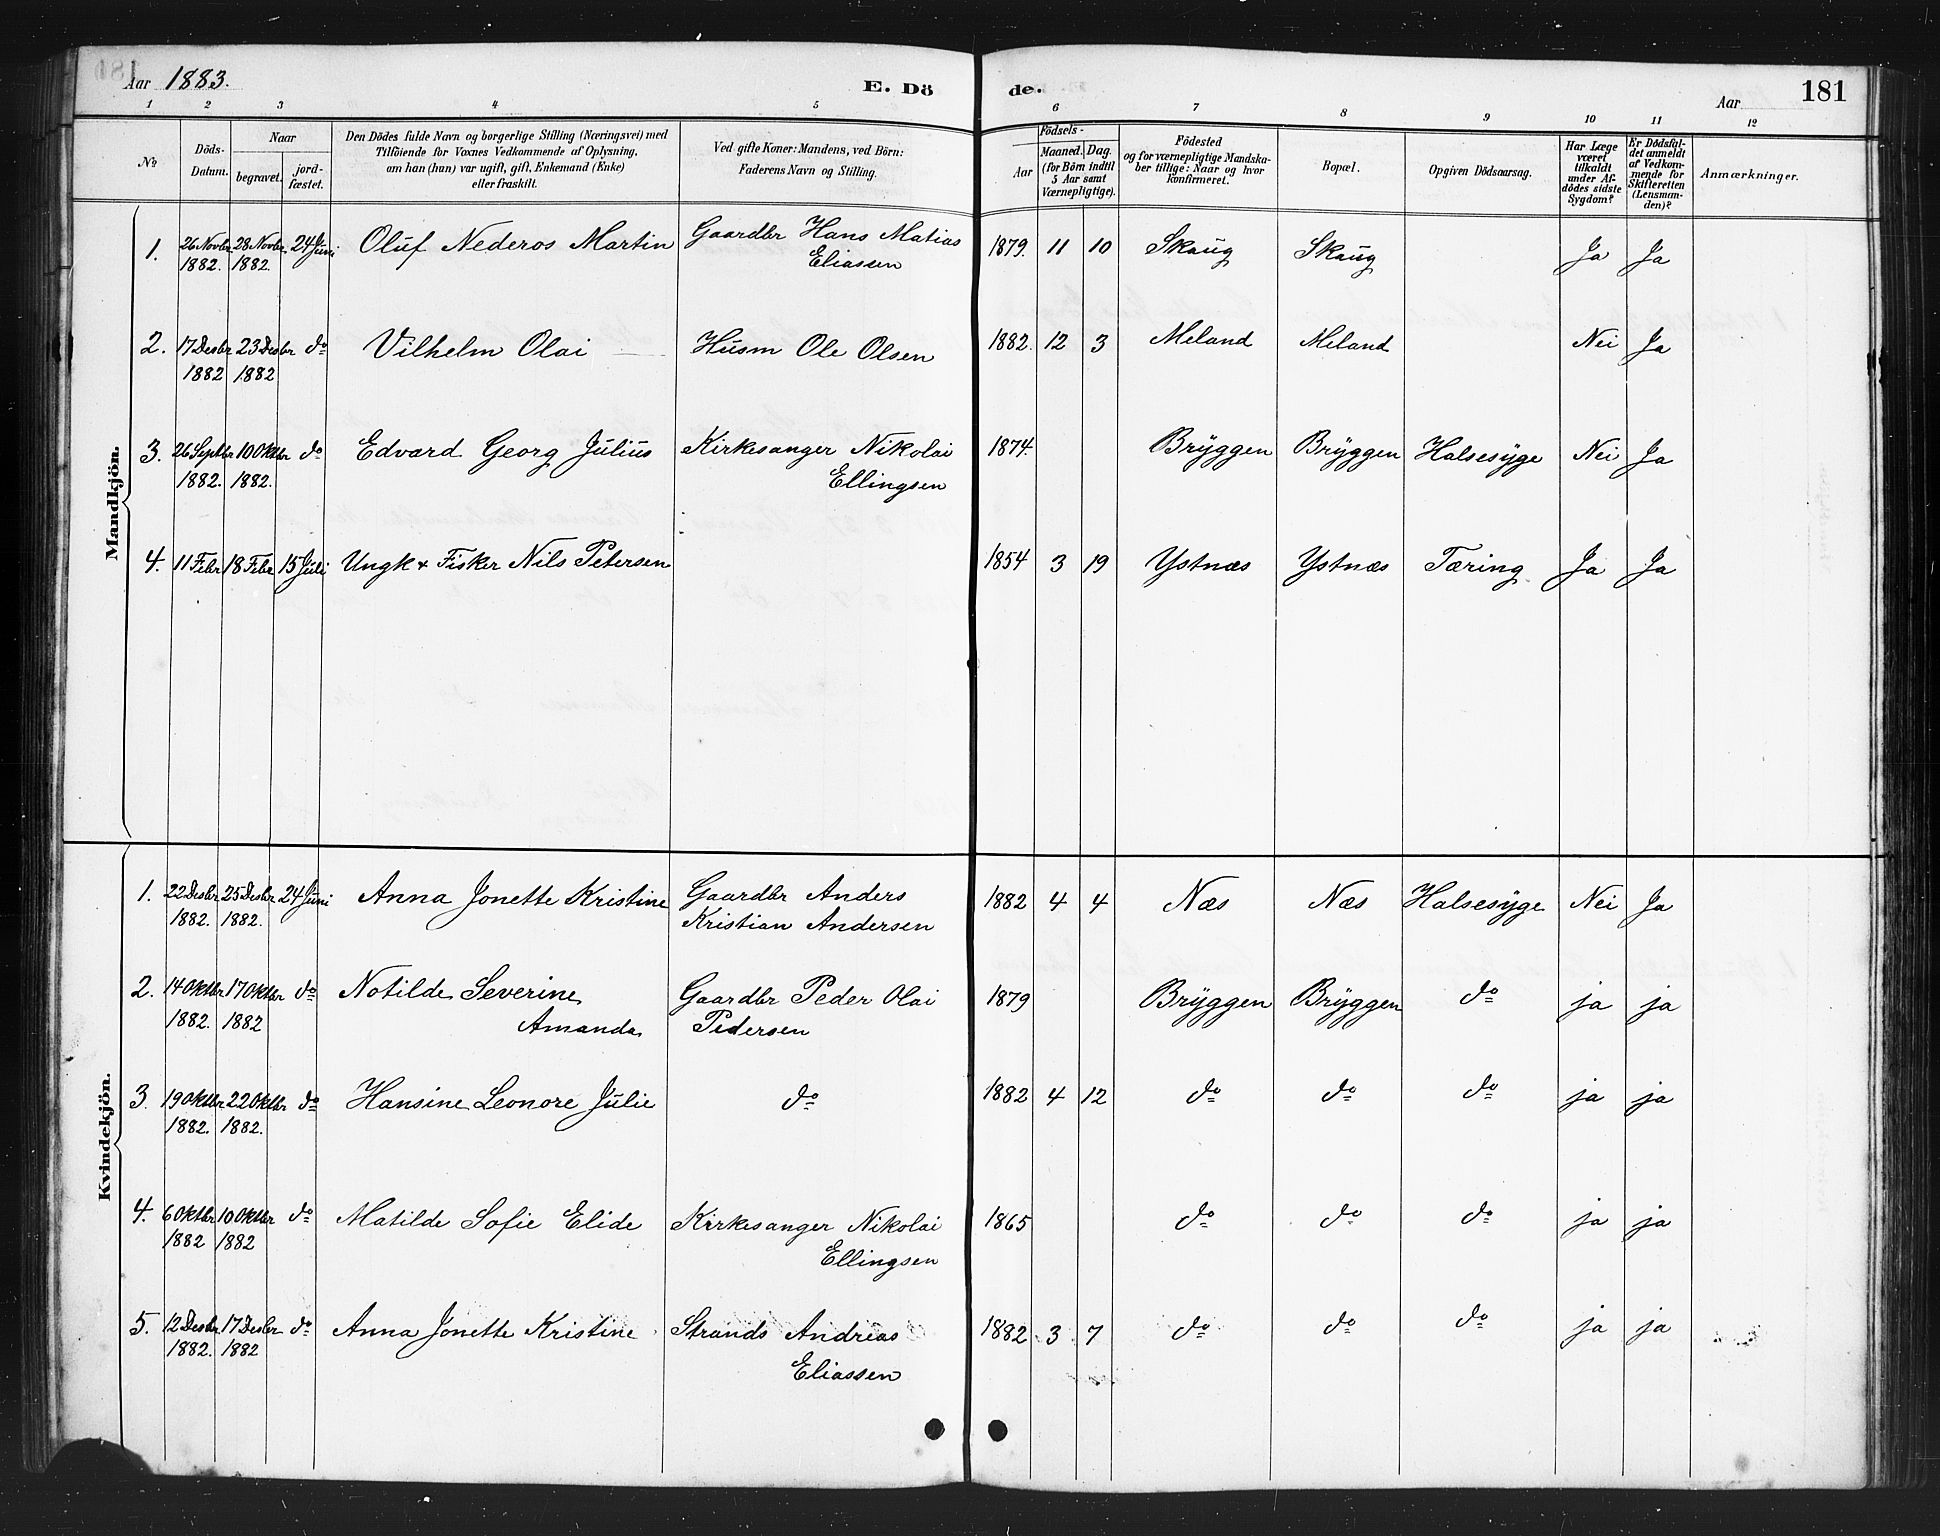 Aar 1883. E. Dö de. Aar 181
1 2 3 4 5 6 7 8 9 10 11 12
No
Döds-
Datum.
Naar
begravet.
jord-
fæstet.
Den Dödes fulde Navn og borgerlige Stilling (Næringsvei) med
Tilföiende for Voxnes Vedkommende af Oplysning,
om han (hun) var ugift, gift, Enkemand (Enke)
eller fraskilt.
Ved gifte Koner: Mandens, ved Börn:
Faderens Navn og Stilling.
Födsels-
Aar
Maaned. Dag.
(for Börn indtil
5 Aar samt
Værnepligtige).
Födested
og for værnepligtige Mandska-
ber tillige: Naar og hvor
konfirmeret.
Bopæl.
Opgiven Dödsaarsag.
Har Læge
været
tilkaldt
under Af-
dödes sidste
Sygdom?
Er Dödsfal-
det anmeldt
af Vedkom-
mende for
Skifteretten
(Lensman-
den)?
Anmærkninger.
Mandkjön.
1. 26 Novbr 28 Novbr 24 Juni Oluf Nederos Martin Gaardbr Hans Matias 1879. 11 10 Skaug Skaug Ja Ja
1882. 1882. Eliassen
2. 17 Desbr 23 Desbr do Vilhelm Olai Husm Ole Olsen 1882. 12 3 Meland Meland Nei Ja
1882 1882
3. 26 Septbr 10 Oktbr do Edvard Georg Julius Kirkesanger Nikolai 1874. Bryggen Bryggen Halsesyge Nei Ja
1882. 1882. Ellingsen
4. 11 Febr 18 Febr 15 Juli Ungk + Fisker Nils Petersen 1854 3 19 Ystnæs Ystnæs Tæring Ja Ja
Kvindekjön.
1. 22 Desbr 25 Desbr 24 Juni Anna Jonette Kristine Gaardbr Anders 1882 4 4 Næs Næs Halsesyge Nei Ja
1882. 1882. Kristian Andersen
2. 14 Oktbr 17 Oktbr do Notilde Severine Gaardbr Peder Olai 1879 Bryggen Bryggen do ja ja
1882. 1882 Amanda Pedersen
3. 19 Oktbr 22 Oktbr do Hansine Leonore Julie do 1882 4 12 do do do ja ja
1882. 1882.
4. 6 Oktbr 10 Oktbr do Matilde Sofie Elide Kirkesanger Nikolai 1865 do do do ja ja
1882 1882 Ellingsen
5. 12 Desbr 17 Desbr do Anna Jonette Kristine Strands Andreas 1882 3 7 do do do ja ja
1882. 1882 Eliassen